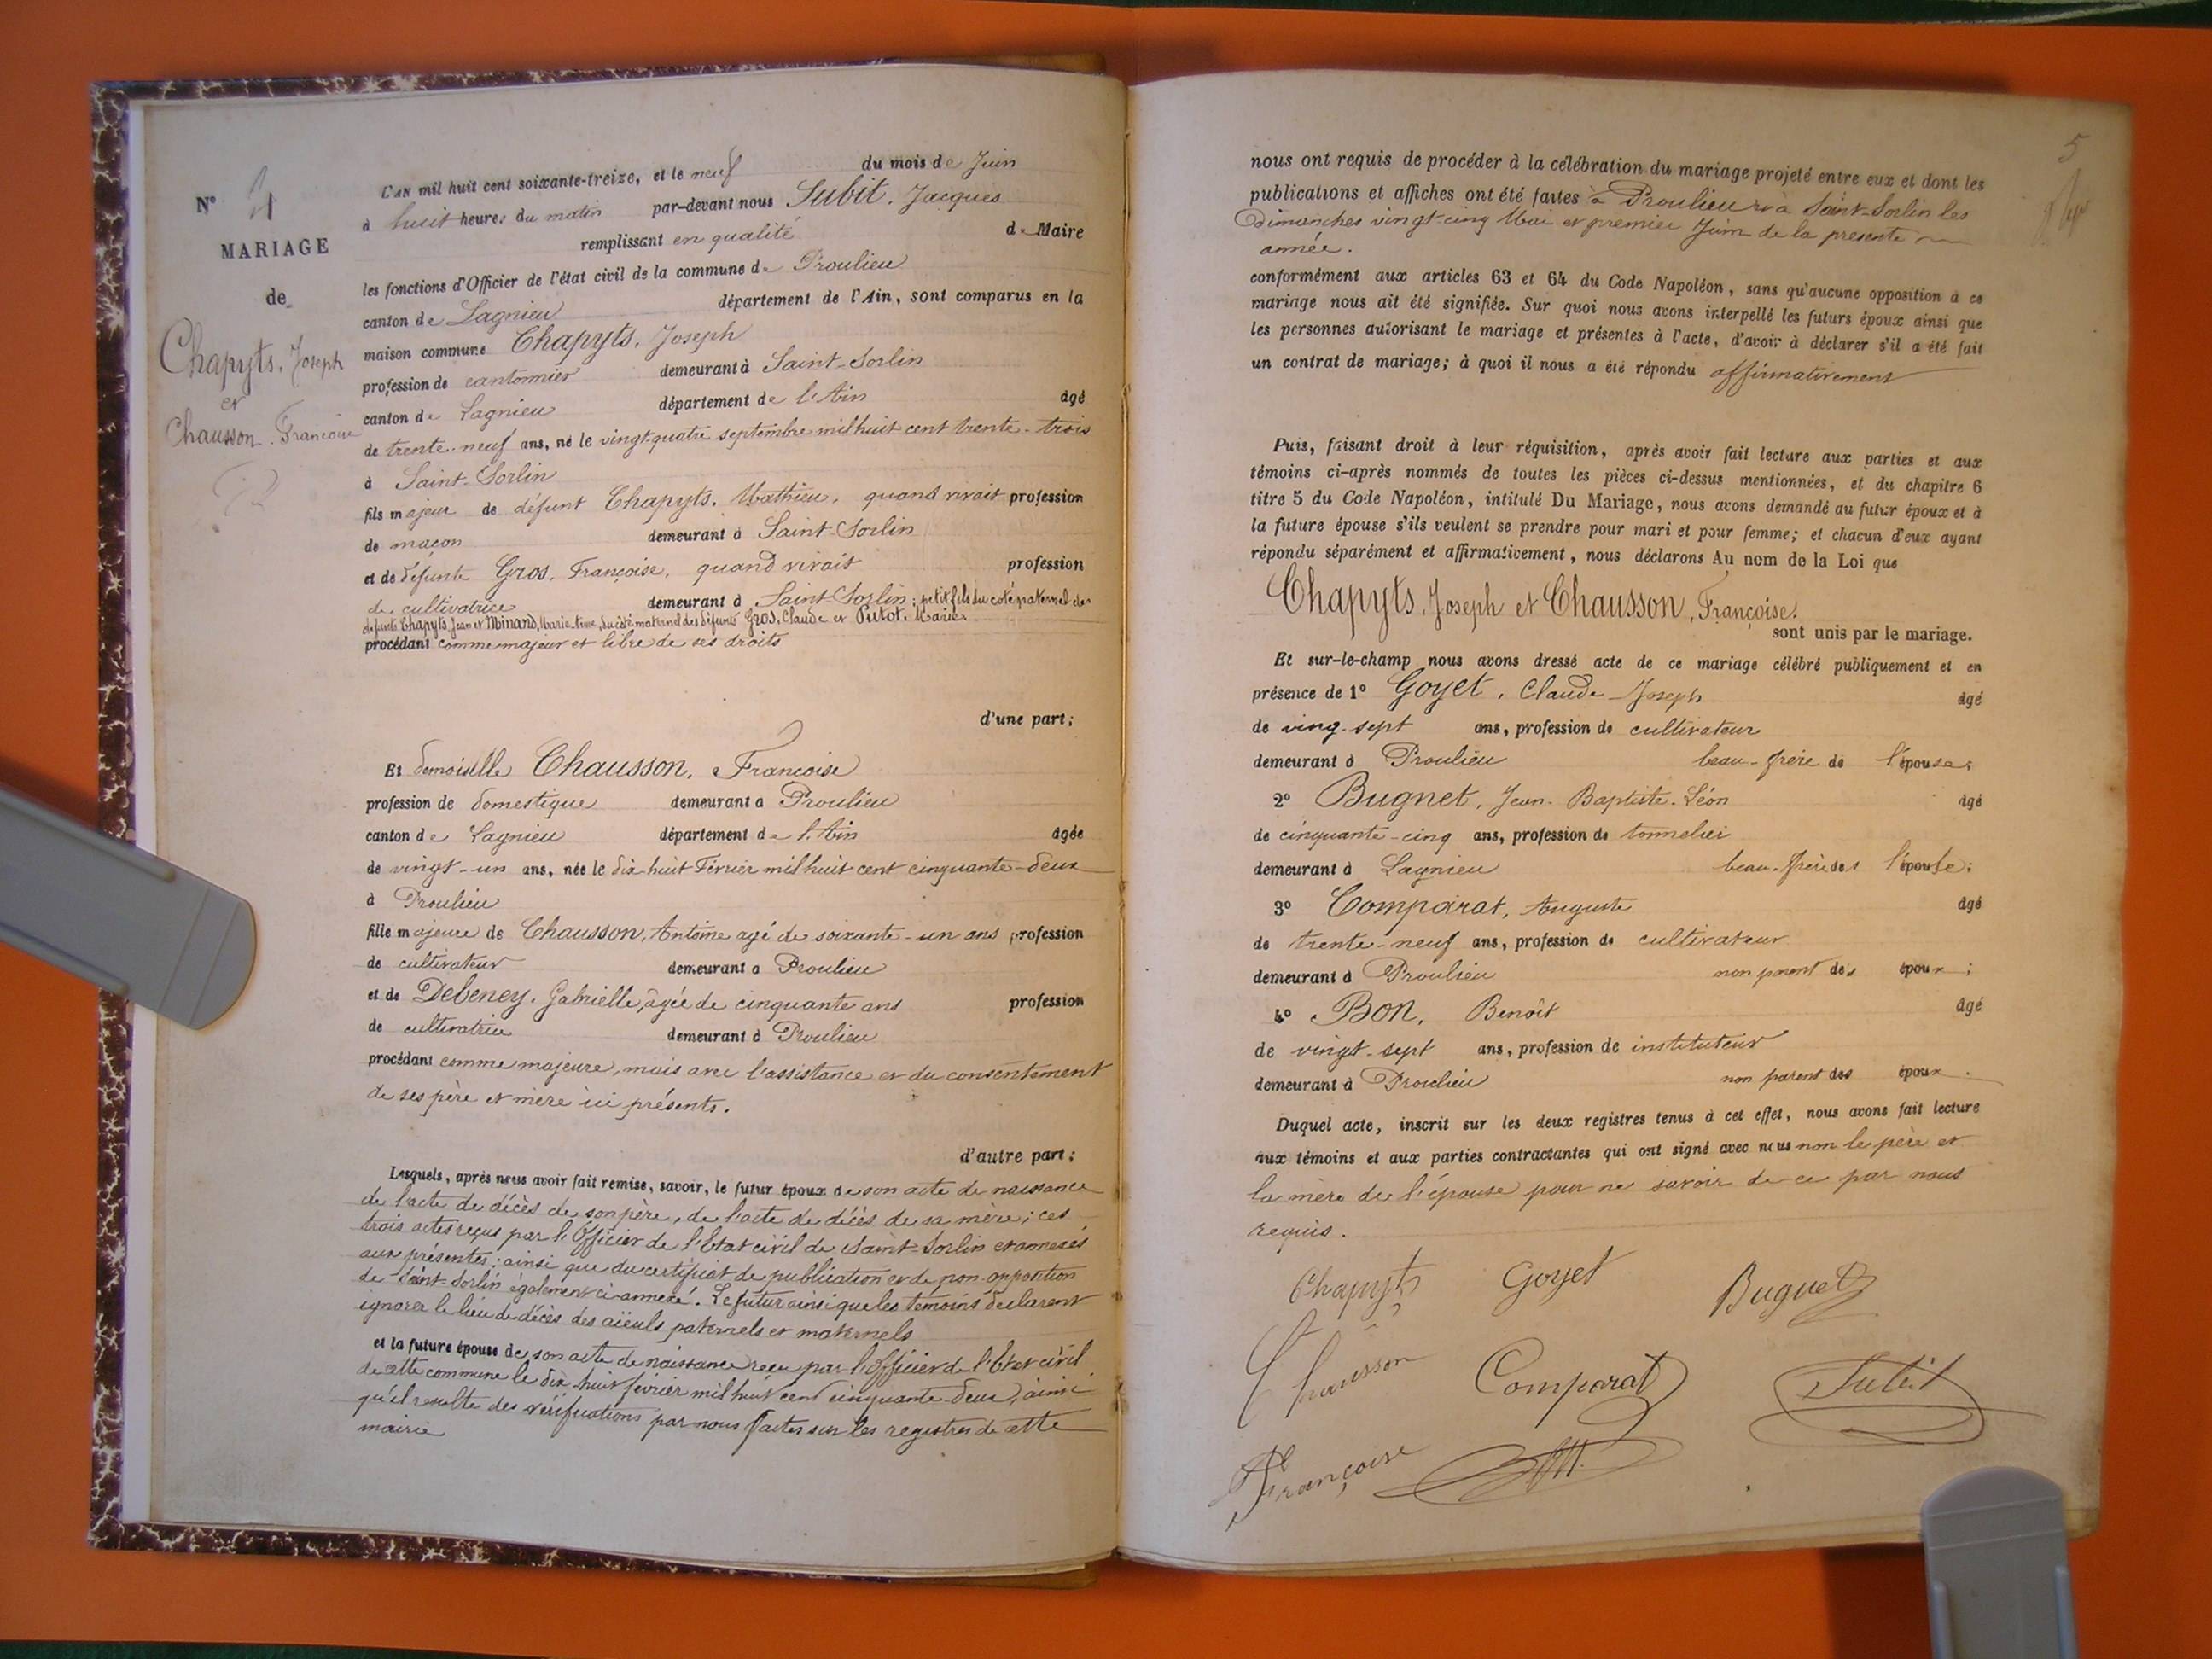 N° 4
MARIAGE
de
Chapyts, Joseph
et
Chausson, Francoise
L'AN mil huit cent soixante-treize, et le neuf du mois de Juin
à huit heures du matin par-devant nous Subit, Jacques
remplissant en qualité de Maire
les fonctions d'Officier de l'état civil de la commune de Proulieu
canton de Lagnieu département de l'Ain, sont comparus en la
maison commune Chapyts, Joseph
profession de cantonnier demeurant à Saint-Sorlin
canton de Lagnieu département de l'Ain âgé
de trente-neuf ans, né le vingt-quatre septembre mil huit cent trente-trois
à Saint-Sorlin
fils majeur de défunt Chapyts, Mathieu, quand vivait profession
de maçon demeurant à Saint-Sorlin
et de défunte Gros, Françoise, quand vivait profession
de cultivatrice demeurant à Saint-Sorlin; petit fils du coté paternel des
défunts Chapyts, Jean et Minand, Marie Aime, du coté maternel des défunts Gros, Claude et Pitot, Marie.
procédant comme majeur et libre de ses droits
d'une part;
Et demoiselle Chausson, Francoise
profession de domestique demeurant a Proulieu
canton de Lagnieu département de l'Ain âgée
de vingt-un ans, née le dix-huit Février mil huit cent cinquante-deux
à Proulieu
fille majeure de Chausson, Antoine agé de soixante-un ans profession
de cultivateur demeurant a Proulieu
et de Debeney, Gabrielle, âgée de cinquante ans profession
de cultivatrice demeurant à Proulieu
procédant comme majeure, mais avec l'assistance et du consentement
de ses père et mère ici présents.
d'autre part;
Lesquels, après nous avoir fait remise, savoir, le futur époux de son acte de naissance
de l'acte de décès de son père, de l'acte de décès de sa mère; ces
trois actes reçus par l'Officier de l'Etat civil de Saint-Sorlin et annexés
aux présentes; ainsi que du certificat de publication et de non-opposition
de Saint-Sorlin également ci-annexé. Le futur ainsi que les témoins declarent
ignorer le lieu de décès des aïeuls paternels et maternels
et la future épouse de son acte de naissance reçu par l'Officier de l'Etat civil
de cette commune le dix-huit février mil huit cent cinquante-deux, ainsi
qu'il resulte des vérifications par nous faites sur les registres de cette
mairie
5
nous ont requis de procéder à la célébration du mariage projeté entre eux et dont les
publications et affiches ont été faites à Proulieu et à Saint-Sorlin les
Dimanches vingt-cinq Mai et premier Juin de la presente
année.
conformément aux articles 63 et 64 du Code Napoléon, sans qu'aucune opposition à ce
mariage nous ait été signifiée. Sur quoi nous avons interpellé les futurs époux ainsi que
les personnes autorisant le mariage et présentes à l'acte, d'avoir à déclarer s'il a été fait
un contrat de mariage; à quoi il nous a été répondu affirmativement
Puis, faisant droit à leur réquisition, après avoir fait lecture aux parties et aux
témoins ci-après nommés de toutes les pièces ci-dessus mentionnées, et du chapitre 6
titre 5 du Code Napoléon, intitulé Du Mariage, nous avons demandé au futur époux et à
la future épouse s'ils veulent se prendre pour mari et pour femme; et chacun d'eux ayant
répondu séparément et affirmativement, nous déclarons Au nom de la Loi que
Chapyts, Joseph et Chausson, Françoise.
sont unis par le mariage.
Et sur-le-champ nous avons dressé acte de ce mariage célébré publiquement et en
présence de 1° Goyet, Claude-Joseph âgé
de ving-sept ans, profession de cultivateur
demeurant à Proulieu beau-frère de l'épouse;
2° Bugnet, Jean-Baptiste-Léon âgé
de cinquante-cinq ans, profession de tonnelier
demeurant à Lagnieu beau-frère de l'épouse;
3° Comparat, Auguste âgé
de trente-neuf ans, profession de cultivateur
demeurant à Proulieu non parent des époux;
4° Bon, Benoît âgé
de vingt-sept ans, profession de instituteur
demeurant à Proulieu non parent des époux.
Duquel acte, inscrit sur les deux registres tenus à cet effet, nous avons fait lecture
aux témoins et aux parties contractantes qui ont signé avec nous non le père et
la mère de l'épouse pour ne savoir de ce par nous
requis.
Chapyts Goyet Bugnet
Chausson Comparat Subit
Françoise Bon